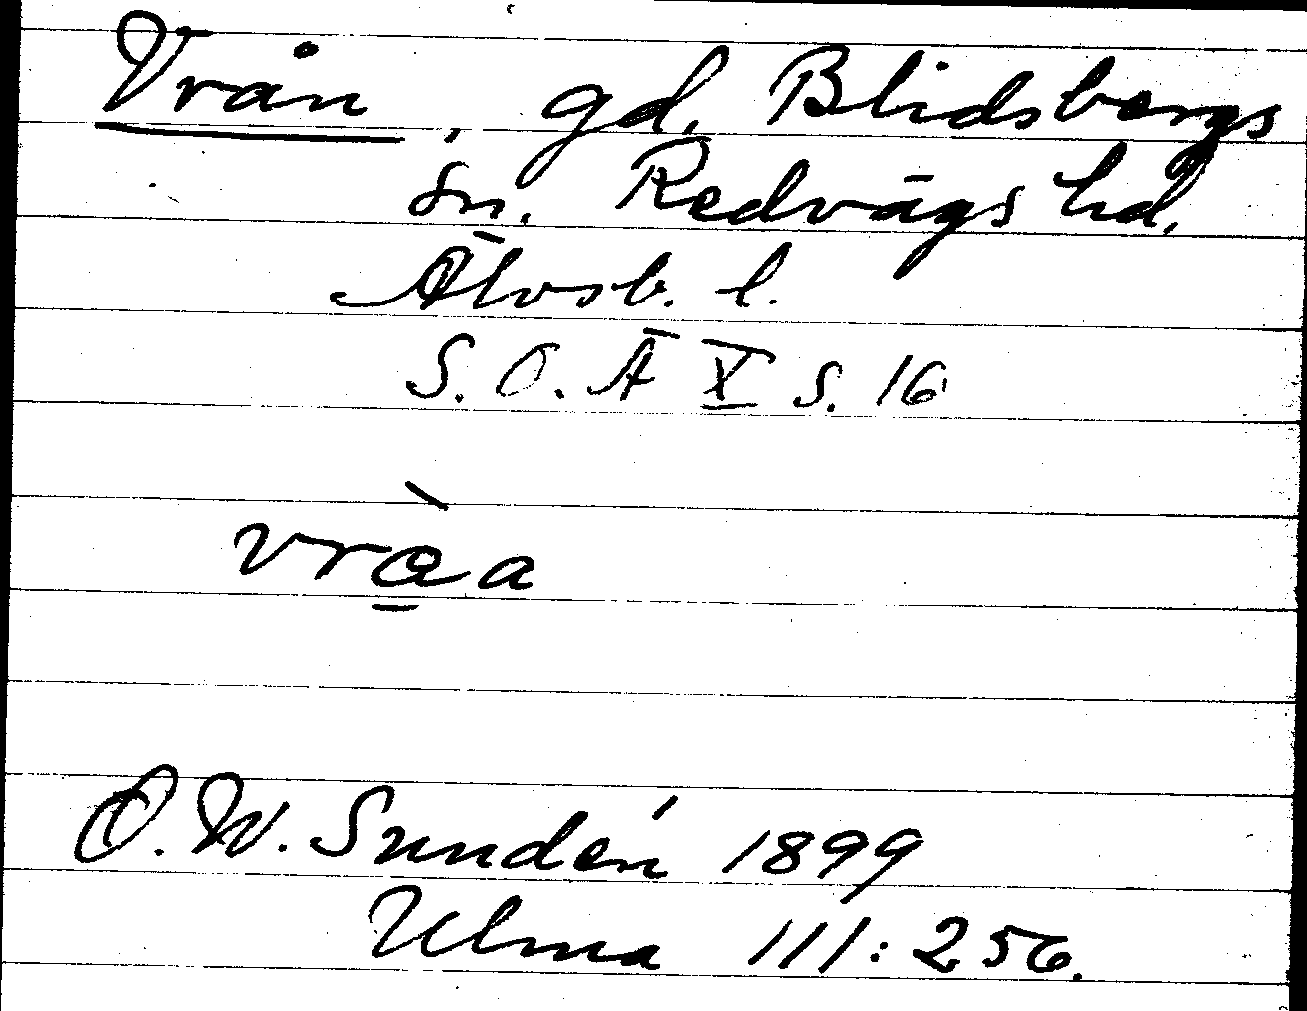 Vrån, gd, Blidsbergs
sn. Redvägs hd,
Älvsb. l.
S. O. Ä X s. 16
vrò̲a
D. W. Sundén 1899
Ulma 111:256.